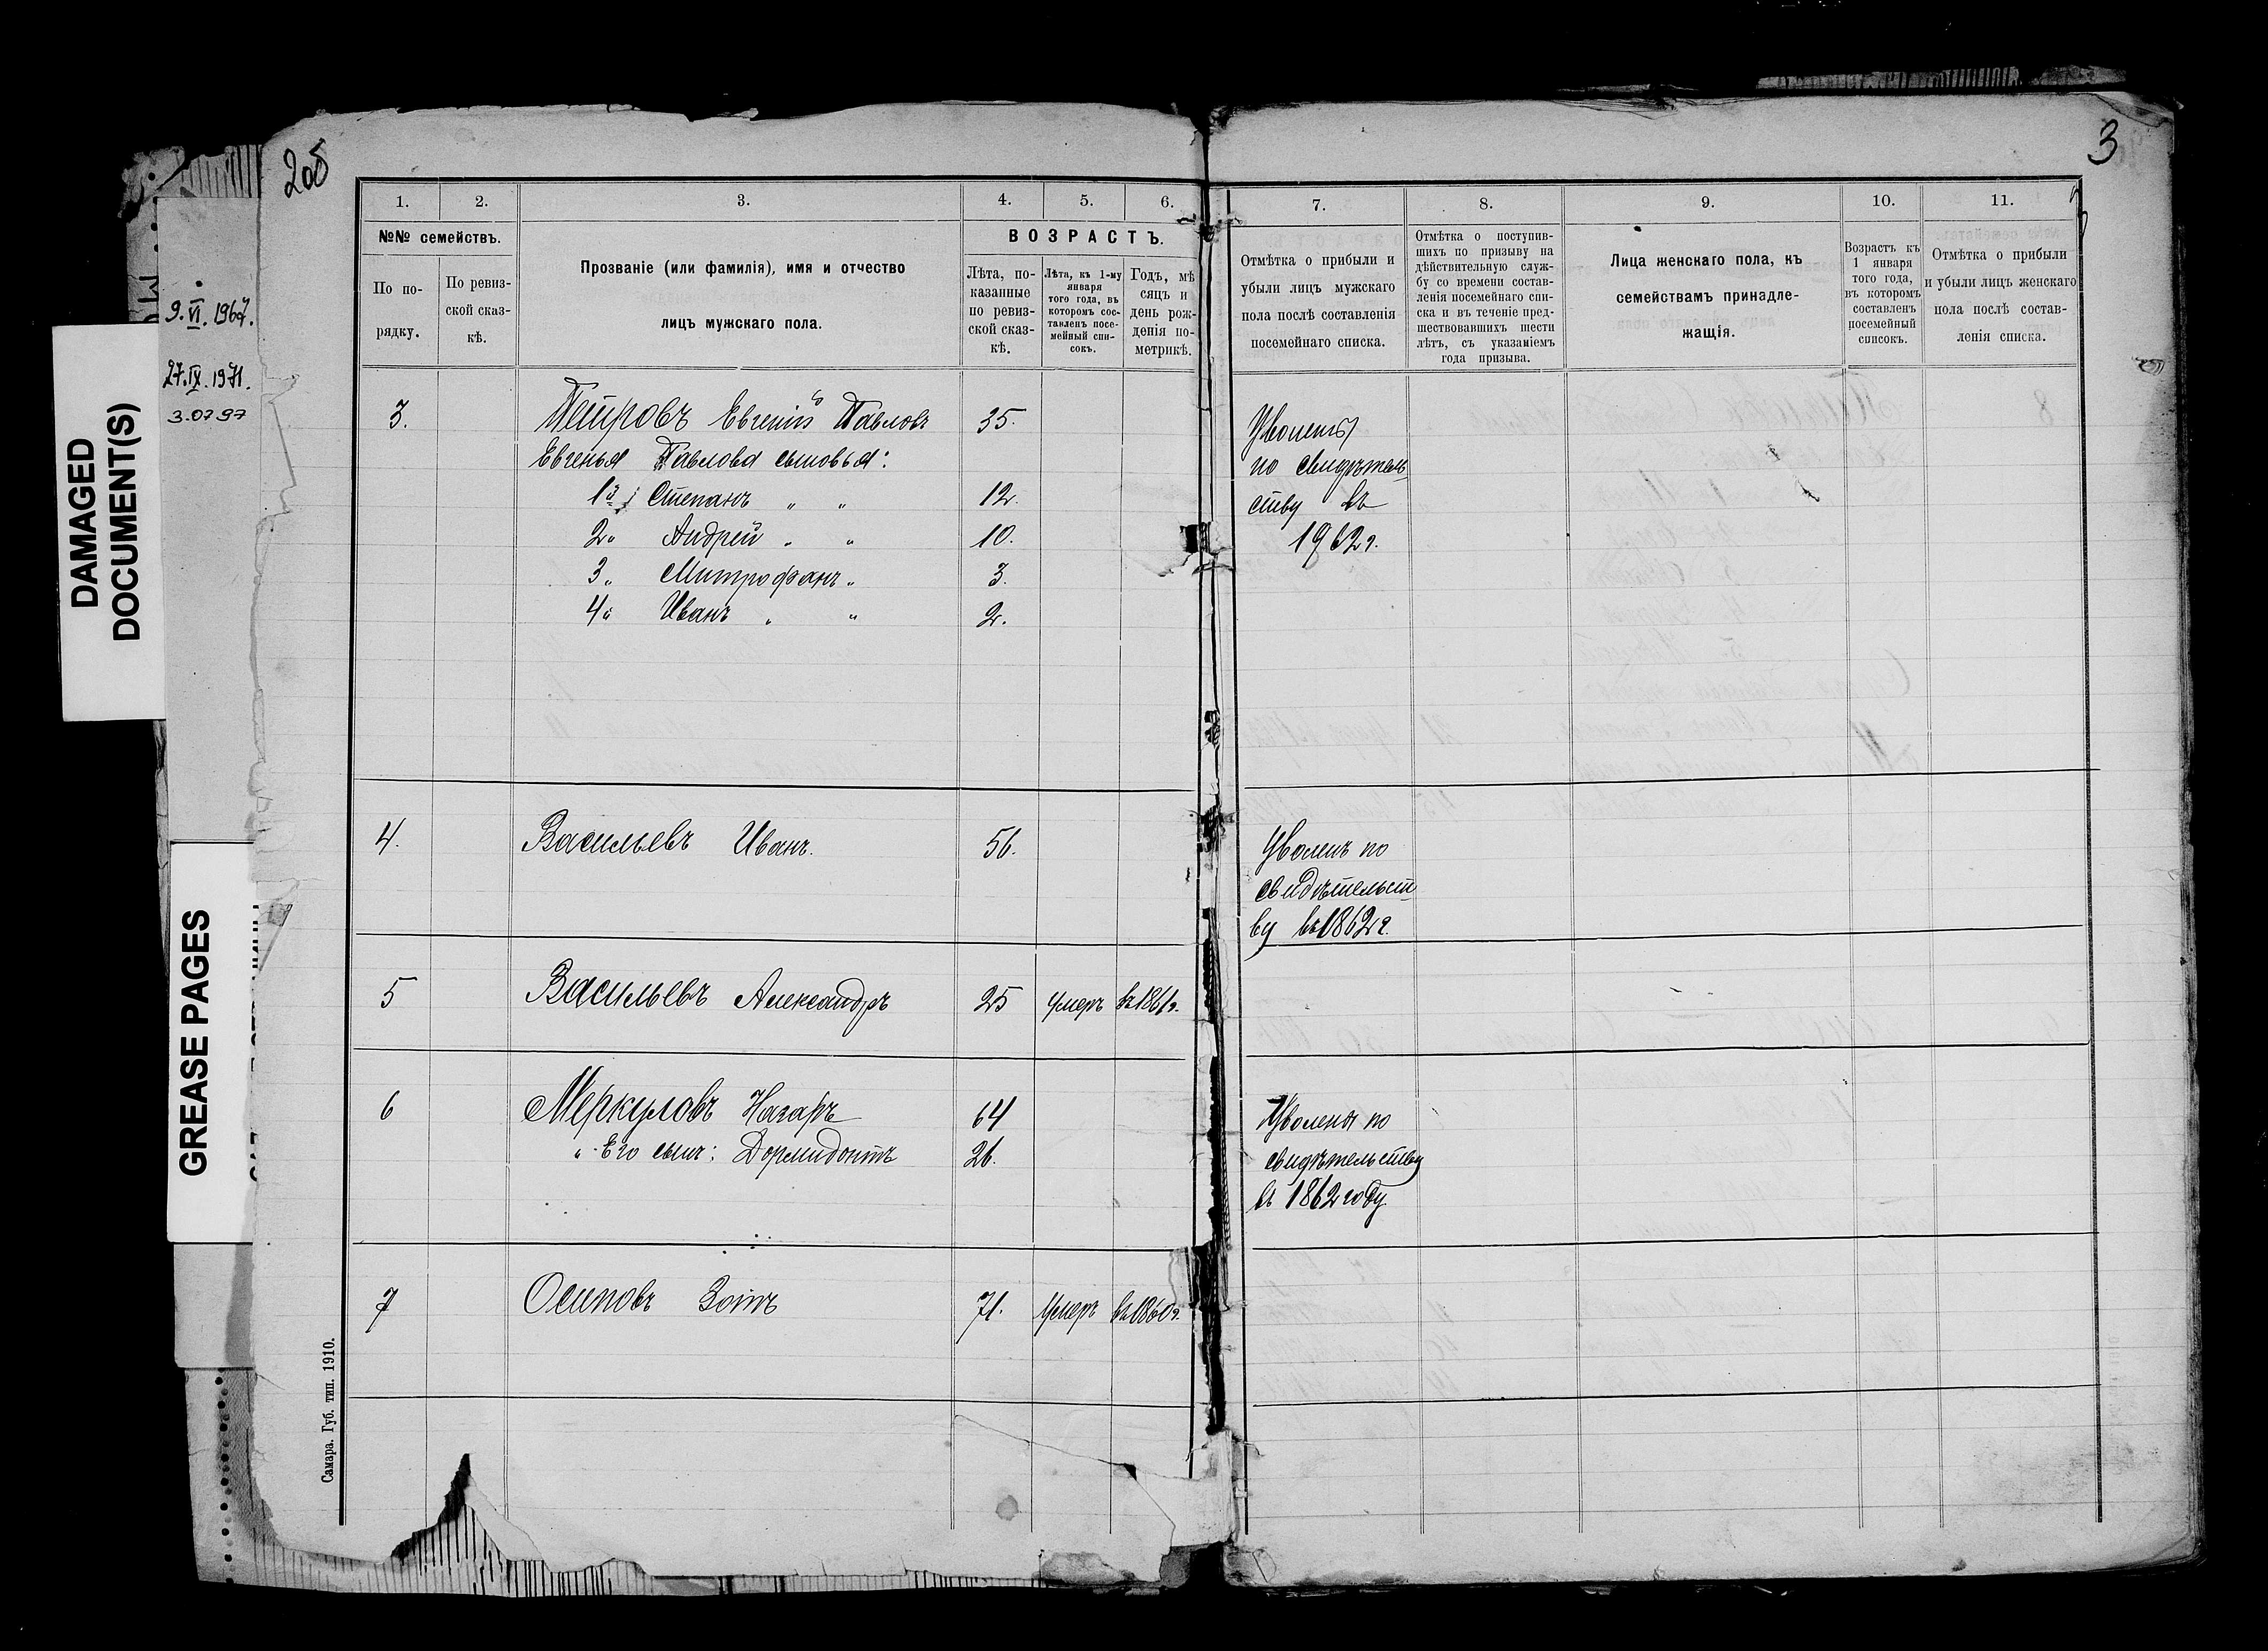 DAMAGED
DOCUMENT(S)
GREASE PAGES
9.VI.1967.
27.IX.1971.
3.07.97
205
3
1.
2.
3.
4.
5.
6.
7.
8.
9.
10.
11.
№№ семействъ.
По по-
рядку.
По ревиз-
ской сказ-
кѣ.
Прозваніе (или фамилія), имя и отчество
лицъ мужскаго пола.
ВОЗРАСТЪ.
Лѣта, по-
казанные
по ревиз-
ской сказ-
кѣ.
Лѣта, къ 1-му
января
того года, въ
которомъ сос-
тавленъ посе-
мейный спи-
сокъ.
Годъ, мѣ
сяцъ и
день рож-
денія по-
метрикѣ.
Отмѣтка о прибыли и
убыли лицъ мужскаго
пола послѣ составленія
посемейнаго списка.
Отмѣтка о поступив-
шихъ по призыву на
дѣйствительную служ-
бу со времени состав-
ленія посемейнаго спи-
ска и въ теченіе пред-
шествовавшихъ шести
лѣтъ, съ указаніемъ
года призыва.
Лица женскаго пола, къ
семействамъ принадле-
жащія.
Возрастъ къ
1 января
того года,
въ которомъ
составленъ
посемейный
списокъ.
Отмѣтка о прибыли
и убыли лицъ женскаго
пола послѣ состав-
ленія списка.
3. Петровъ Евгеній Павловъ 35.
Евгенья Павлова сыновья:
1й Степанъ " " 12.
2" Андрей " " 10.
3" Митрофанъ " 3.
4" Иванъ " " 2.
Уволенъ
по свидѣтель
ству въ
1962 г.
4. Васильевъ Иванъ. 56.
Уволенъ по
свидѣтельст
ву въ 1862 г.
5 Васильевъ Александръ 25 умеръ въ 1861 г.
6 Меркуловъ Назаръ 64
" Его сынъ: Дормидонтъ 26.
Уволены по
свидѣтельству
въ 1862 году
7 Осиповъ Зотъ 71. Умеръ въ 1860 г.
Самара. Губ. тип. 1910.